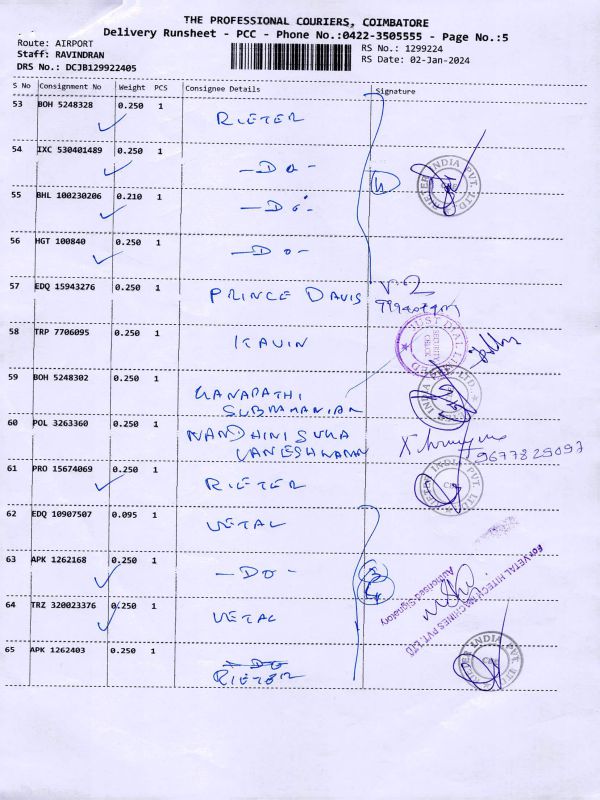 THE PROFESSIONAL COURIERS, COIMBATORE
Delivery Runsheet - PCC - Phone No.:0422-3505555 - Page No.:5
Route: AIRPORT
Staff: RAVINDRAN
DRS No.: DCJB129922405
RS No.: 1299224
RS Date: 02-Jan-2024
S No Consignment No Weight PCS Consignee Details Signature
53 BOH 5248328 0.250 1 RIETER
54 IXC 530401489 0.250 1 -Do-
RIETER INDIA PVT. LTD.
55 BHL 100230206 0.210 1 -Do-
56 HGT 100840 0.250 1 -Do-
57 EDQ 15943276 0.250 1 PRINCE DAVIS
58 TRP 7706095 0.250 1 KAVIN
JUST DIAL LTD
SECURITY CHECK
59 BOH 5248302 0.250 1 GANAPATHI
SUBRAMANIAN
60 POL 3263360 0.250 1 NANDHINI SUKA
VANESHWARAN
9677825097
61 PRO 15674069 0.250 1 RIETER
RIETER INDIA PVT. LTD.
62 EDQ 10907507 0.095 1 VETAL
63 APK 1262168 0.250 1 -Do-
For VETAL HITECH MACHINES PVT. LTD
Authorised Signatory
64 TRZ 320023376 0.250 1 VETAL
65 APK 1262403 0.250 1 -Do
RIETER
RIETER INDIA PVT. LTD.